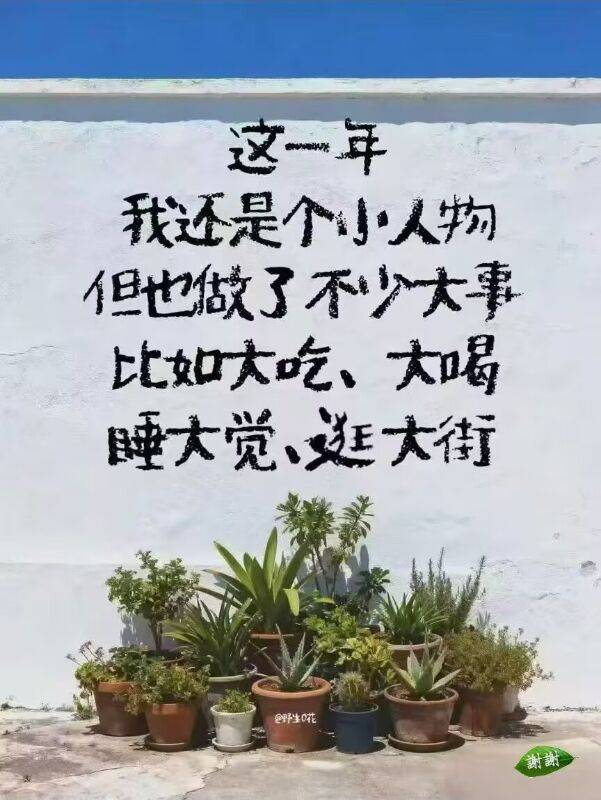 这一年
我还是个小人物
但也做了不少大事
比如大吃、大喝
睡大觉、逛大街
@野生の花
謝謝